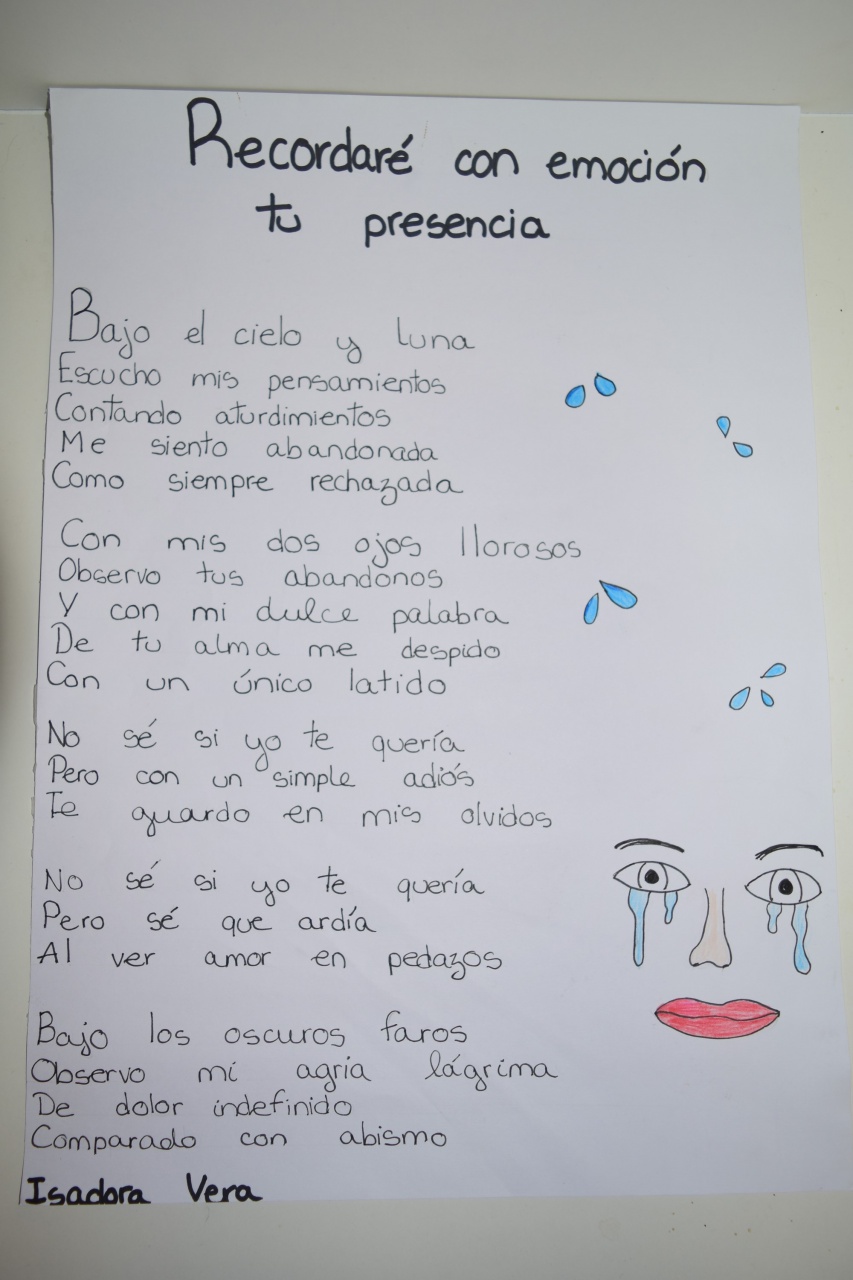 Recordaré con emoción
tu presencia
Bajo el cielo y luna
Escucho mis pensamientos
Contando aturdimientos
Me siento abandonada
Como siempre rechazada
Con mis dos ojos llorosos
Observo tus abandonos
Y con mi dulce palabra
De tu alma me despido
Con un único latido
No sé si yo te quería
Pero con un simple adiós
Te guardo en mis olvidos
No sé si yo te quería
Pero sé que ardía
Al ver amor en pedazos
Bajo los oscuros faros
Observo mi agria lágrima
De dolor indefinido
Comparado con abismo
Isadora Vera